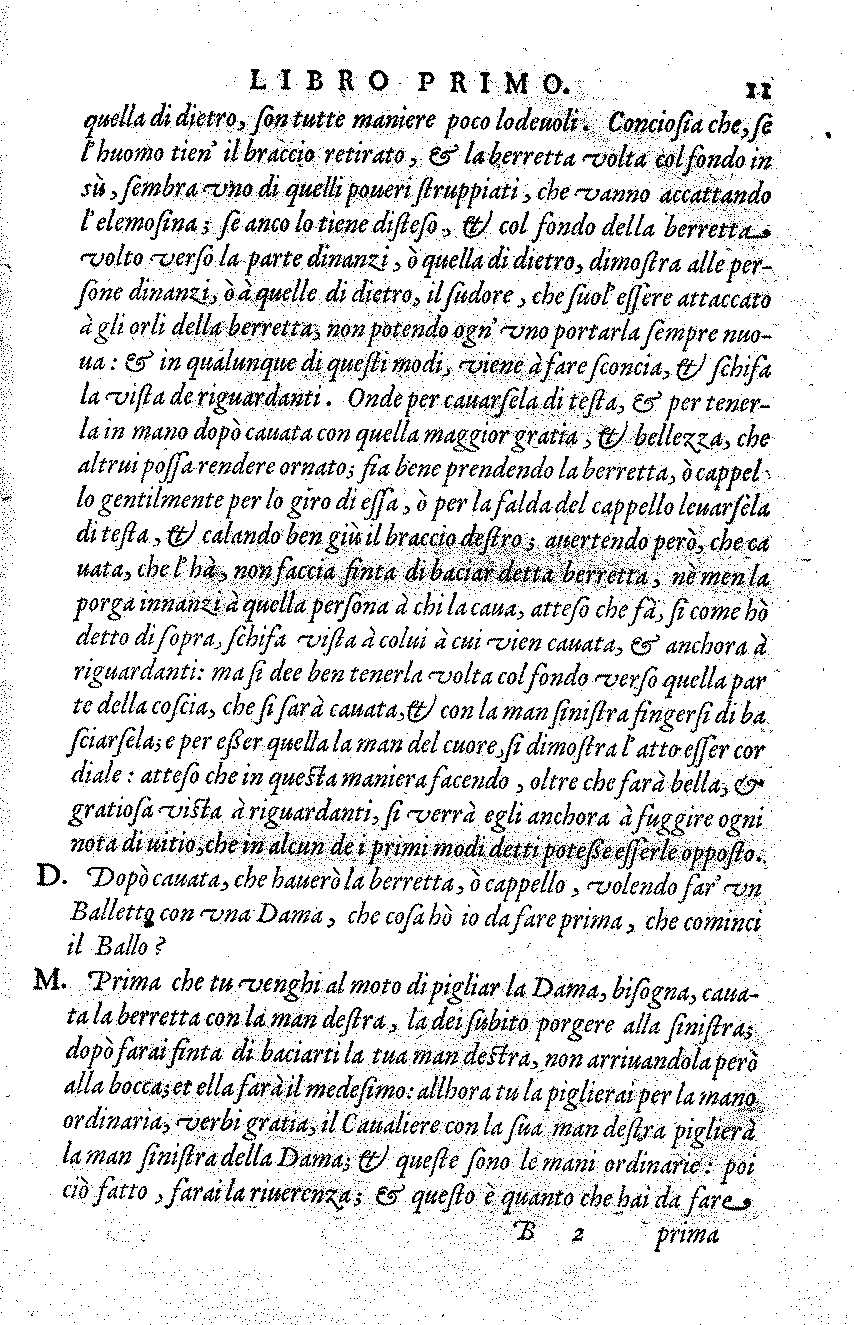 LIBRO PRIMO. 11
quella di dietro, ſon tutte maniere poco lodeuoli. Concioſia che, ſe
l'huomo tien' il braccio retirato, & la berretta volta col fondo in
sù, ſembra vno di quelli poueri ſtruppiati, che vanno accattando
l'elemoſina; ſe anco lo tiene diſteſo, & col fondo della berretta
volto verſo la parte dinanzi, ò quella di dietro, dimoſtra alle per-
ſone dinanzi, ò à quelle di dietro, il ſudore, che ſuol' eſſere attaccato
à gli orli della berretta, non potendo ogn' vno portarla ſempre nuo-
ua: & in qualunque di queſti modi, viene à fare ſconcia, & ſchifa
la viſta de riguardanti. Onde per cauarſela di teſta, & per tener-
la in mano dopò cauata con quella maggior gratia, & bellezza, che
altrui poſſa rendere ornato; ſia bene prendendo la berretta, ò cappel
lo gentilmente per lo giro di eſſa, ò per la falda del cappello leuarſela
di teſta, & calando ben giù il braccio deſtro; auertendo però, che ca
uata, che l'hà, non faccia finta di baciar detta berretta, nè men la
porga innanzi à quella perſona à chi la caua, atteſo che fà, ſi come hò
detto di ſopra, ſchifa viſta à colui à cui vien cauata, & anchora à
riguardanti: ma ſi dee ben tenerla volta col fondo verſo quella par
te della coſcia, che ſi ſarà cauata, & con la man ſiniſtra fingerſi di ba
ſciarſela; e per eßer quella la man del cuore, ſi dimoſtra l'atto eſſer cor
diale: atteſo che in queſta maniera facendo, oltre che farà bella, &
gratioſa viſta à riguardanti, ſi verrà egli anchora à fuggire ogni
nota di uitio, che in alcun de i primi modi detti poteße eſſerle oppoſto.
D. Dopò cauata, che hauerò la berretta, ò cappello, volendo far' vn
Balletto con vna Dama, che coſa hò io da fare prima, che cominci
il Ballo?
M. Prima che tu venghi al moto di pigliar la Dama, biſogna, caua-
ta la berretta con la man deſtra, la dei ſubito porgere alla ſiniſtra;
dopò farai finta di baciarti la tua man deſtra, non arriuandola però
alla bocca; et ella farà il medeſimo: allhora tu la piglierai per la mano
ordinaria, verbi gratia, il Caualiere con la ſua man deſtra piglierà
la man ſiniſtra della Dama; & queſte ſono le mani ordinarie: poi
ciò fatto, farai la riuerenza; & queſto è quanto che hai da fare
B 2 prima